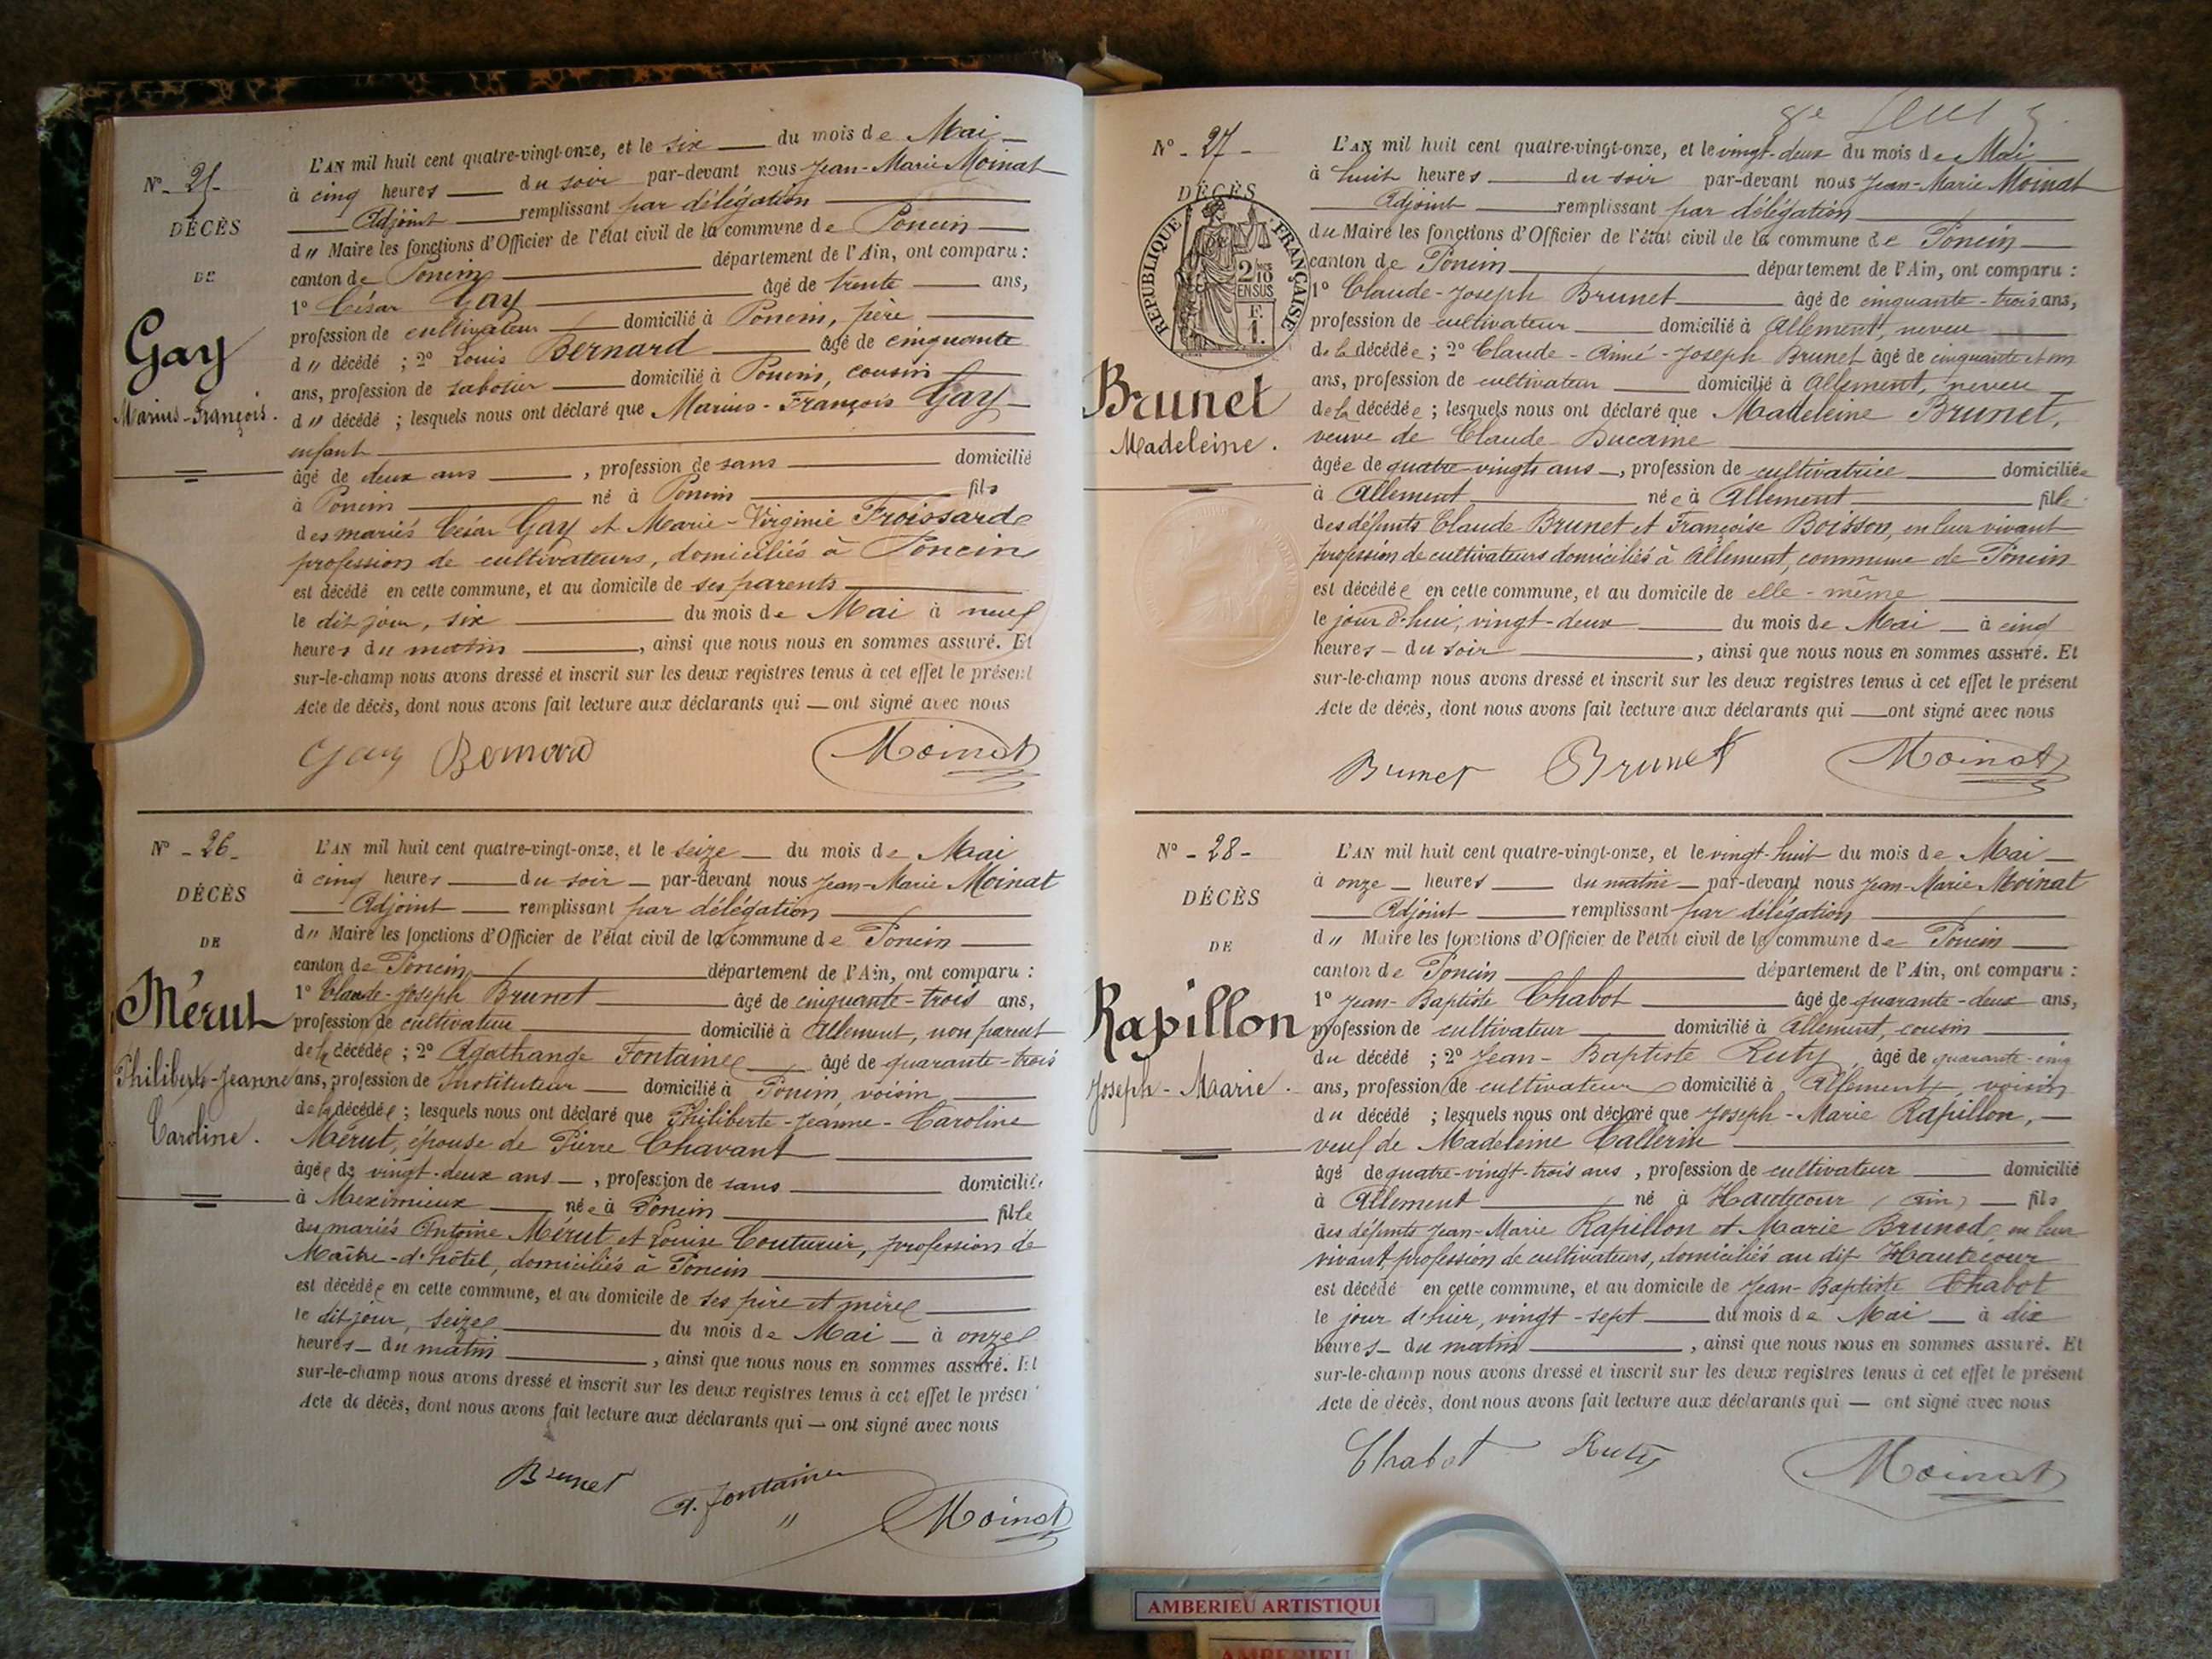 N° - 25 -
DÉCÈS
DE
Gay
Marius-François.
L'AN mil huit cent quatre-vingt-onze, et le six du mois de Mai
à cinq heures du soir par-devant nous Jean-Marie Moinat
Adjoint remplissant par délégation
d" Maire les fonctions d'Officier de l'état civil de la commune de Poncin
canton de Poncin département de l'Ain, ont comparu :
1° César Gay âgé de trente ans,
profession de cultivateur domicilié à Poncin, père
d" décédé ; 2° Louis Bernard âgé de cinquante
ans, profession de sabotier domicilié à Poncin, cousin
d" décédé ; lesquels nous ont déclaré que Marius-François Gay
enfant
âgé de deux ans, profession de sans domicilié
à Poncin né à Poncin fils
des mariés César Gay et Marie-Virginie Froissarde
profession de cultivateurs, domiciliés à Poncin
est décédé en cette commune, et au domicile de ses parents
le dit jour, six du mois de Mai à neuf
heures du matin, ainsi que nous nous en sommes assuré. Et
sur-le-champ nous avons dressé et inscrit sur les deux registres tenus à cet effet le présent
Acte de décès, dont nous avons fait lecture aux déclarants qui — ont signé avec nous
Gay Bernard Moinat
N° - 26 -
DÉCÈS
DE
Mérut
Philiberte-Jeanne
Caroline.
L'AN mil huit cent quatre-vingt-onze, et le seize du mois de Mai
à cinq heures du soir par-devant nous Jean-Marie Moinat
Adjoint remplissant par délégation
d" Maire les fonctions d'Officier de l'état civil de la commune de Poncin
canton de Poncin département de l'Ain, ont comparu :
1° Claude-Joseph Brunet âgé de cinquante-trois ans,
profession de cultivateur domicilié à Allement, non parent
de la décédée ; 2° Agathange Fontaine âgé de quarante-trois
ans, profession de Instituteur domicilié à Poncin, voisin
de la décédée ; lesquels nous ont déclaré que Philiberte-Jeanne-Caroline
Mérut, épouse de Pierre Chavant
âgée de vingt-deux ans, profession de sans domiciliée
à Meximieux née à Poncin fille
des mariés Antoine Mérut et Louise Couturier, profession de
Maître-d'hôtel, domiciliés à Poncin
est décédée en cette commune, et au domicile de ses père et mère
le dit jour, seize du mois de Mai à onze
heures du matin, ainsi que nous nous en sommes assuré. Et
sur-le-champ nous avons dressé et inscrit sur les deux registres tenus à cet effet le présen
Acte de décès, dont nous avons fait lecture aux déclarants qui — ont signé avec nous
Brunet A. Fontaine Moinat
N° - 27 -
DÉCÈS
RÉPUBLIQUE FRANÇAISE
2/10 EN SUS
F. 1.
Brunet
Madeleine.
L'AN mil huit cent quatre-vingt-onze, et le vingt-deux du mois de Mai
à huit heures du soir par-devant nous Jean-Marie Moinat
Adjoint remplissant par délégation
du Maire les fonctions d'Officier de l'état civil de la commune de Poncin
canton de Poncin département de l'Ain, ont comparu :
1° Claude-Joseph Brunet âgé de cinquante-trois ans,
profession de cultivateur domicilié à Allement, neveu
de la décédée ; 2° Claude-Aimé-Joseph Brunet âgé de cinquante et un
ans, profession de cultivateur domicilié à Allement, neveu
de la décédée ; lesquels nous ont déclaré que Madeleine Brunet,
veuve de Claude Ducarme
âgée de quatre-vingts ans, profession de cultivatrice domiciliée
à Allement née à Allement fille
des défunts Claude Brunet et Françoise Boisson, en leur vivant
profession de cultivateurs domiciliés à Allement, commune de Poncin
est décédée en cette commune, et au domicile de elle-même
le jour d'hui, vingt-deux du mois de Mai à cinq
heures du soir, ainsi que nous nous en sommes assuré. Et
sur-le-champ nous avons dressé et inscrit sur les deux registres tenus à cet effet le présent
Acte de décès, dont nous avons fait lecture aux déclarants qui — ont signé avec nous
Brunet Brunet Moinat
N° - 28 -
DÉCÈS
DE
Rapillon
Joseph-Marie.
L'AN mil huit cent quatre-vingt-onze, et le vingt-huit du mois de Mai
à onze heures du matin par-devant nous Jean-Marie Moinat
Adjoint remplissant par délégation
d" Maire les fonctions d'Officier de l'état civil de la commune de Poncin
canton de Poncin département de l'Ain, ont comparu :
1° Jean-Baptiste Chabot âgé de quarante-deux ans,
profession de cultivateur domicilié à Allement, cousin
du décédé ; 2° Jean-Baptiste Ruty âgé de quarante-cinq
ans, profession de cultivateur domicilié à Allement, voisin
du décédé ; lesquels nous ont déclaré que Joseph-Marie Rapillon,
veuf de Madeleine Callerin
âgé de quatre-vingt-trois ans, profession de cultivateur domicilié
à Allement né à Hautecour (Ain) fils
des défunts Jean-Marie Rapillon et Marie Brunod, en leur
vivant profession de cultivateurs, domiciliés au dit Hautecour
est décédé en cette commune, et au domicile de Jean-Baptiste Chabot
le jour d'hier, vingt-sept du mois de Mai à dix
heures du matin, ainsi que nous nous en sommes assuré. Et
sur-le-champ nous avons dressé et inscrit sur les deux registres tenus à cet effet le présent
Acte de décès, dont nous avons fait lecture aux déclarants qui — ont signé avec nous
Chabot Ruty Moinat
AMBERIEU ARTISTIQUE
AMBERIEU